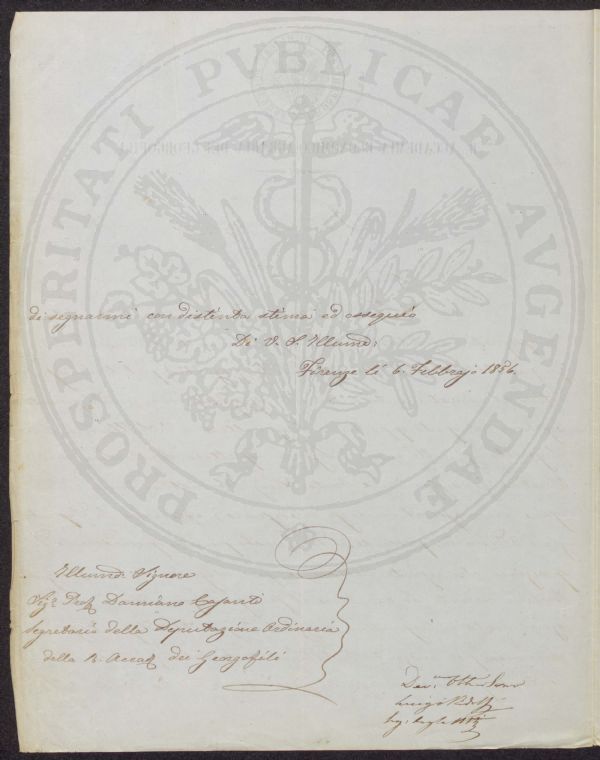 PROSPERITATI PVBLICAE AVGENDAE
di segnarmi con distinta stima ed ossequio
Di V. S. Illuma:
Firenze li 6. Febbrajo 1856.
Illumo Signore
Sigr Prof Damiano Casanti
Segretario della Deputazione Ordinaria
della R. Accad dei Georgofili
Devmo
Luigi Ridolfi